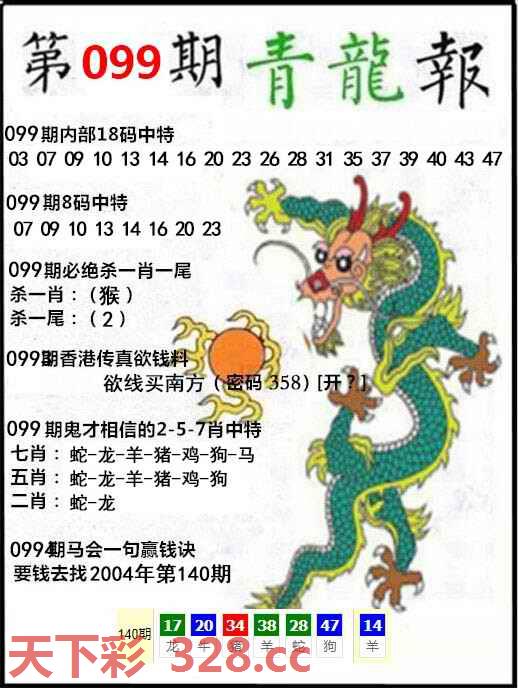 第099期青龍報
099期内部18码中特
03 07 09 10 13 14 16 20 23 26 28 31 35 37 39 40 43 47
099期8码中特
07 09 10 13 14 16 20 23
099期必绝杀一肖一尾
杀一肖：（猴）
杀一尾：（2）
099期香港传真欲钱料
欲线买南方（密码 358）[开？]
099期鬼才相信的2-5-7肖中特
七肖：蛇-龙-羊-猪-鸡-狗-马
五肖：蛇-龙-羊-猪-鸡-狗
二肖：蛇-龙
099期马会一句赢钱诀
要钱去找2004年第140期
140期 17 20 34 38 28 47 14
龙 牛 猪 羊 蛇 狗 羊
天下彩 328.cc